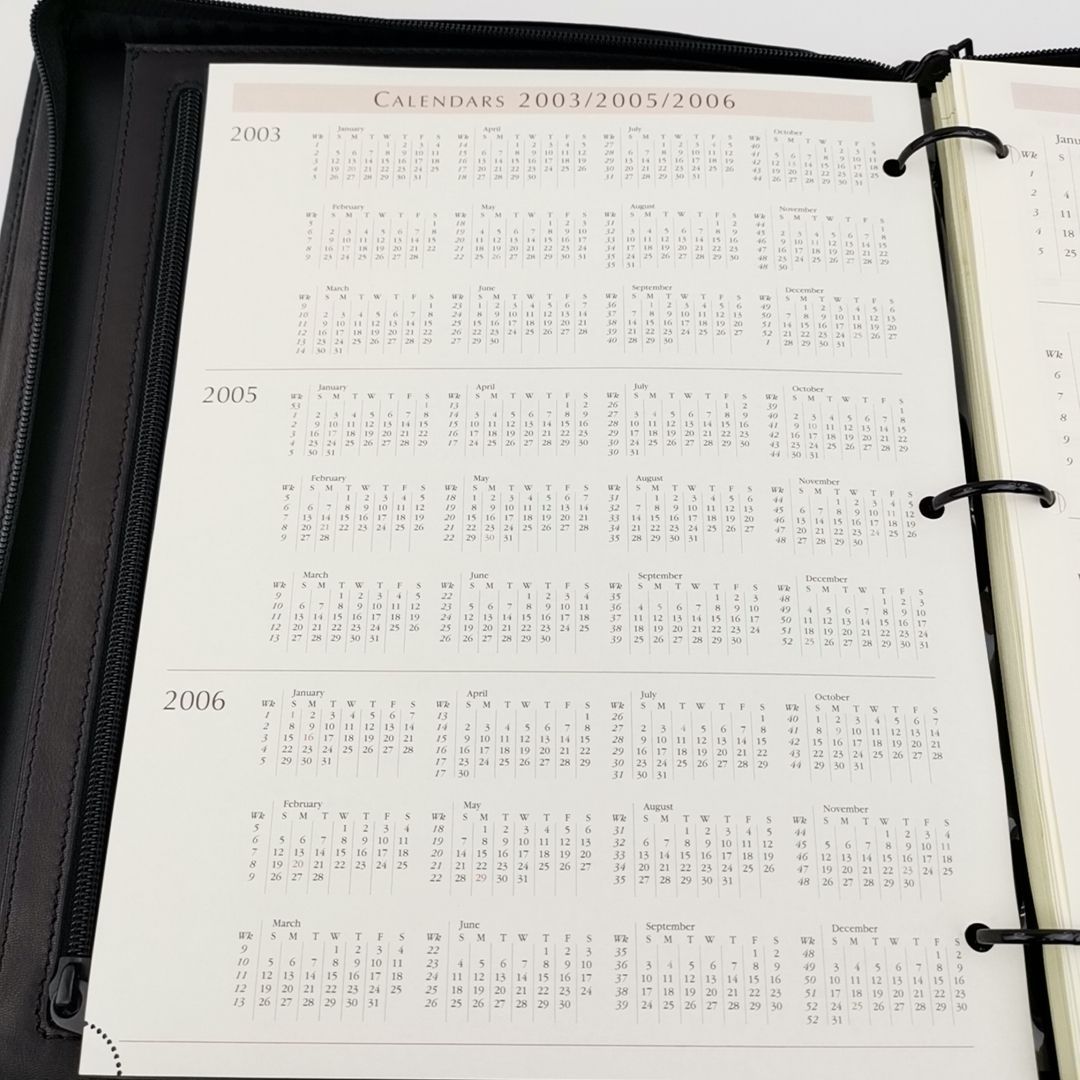 CALENDARS 2003/2005/2006
2003
January
Wk S M T W T F S
1 1 2 3 4
2 5 6 7 8 9 10 11
3 12 13 14 15 16 17 18
4 19 20 21 22 23 24 25
5 26 27 28 29 30 31
April
Wk S M T W T F S
14 1 2 3 4 5
15 6 7 8 9 10 11 12
16 13 14 15 16 17 18 19
17 20 21 22 23 24 25 26
18 27 28 29 30
July
Wk S M T W T F S
27 1 2 3 4 5
28 6 7 8 9 10 11 12
29 13 14 15 16 17 18 19
30 20 21 22 23 24 25 26
31 27 28 29 30 31
October
Wk S M T W T F S
40 1 2 3 4
41 5 6 7 8 9 10 11
42 12 13 14 15 16 17 18
43 19 20 21 22 23 24 25
44 26 27 28 29 30 31
February
Wk S M T W T F S
5 1
6 2 3 4 5 6 7 8
7 9 10 11 12 13 14 15
8 16 17 18 19 20 21 22
9 23 24 25 26 27 28
May
Wk S M T W T F S
18 1 2 3
19 4 5 6 7 8 9 10
20 11 12 13 14 15 16 17
21 18 19 20 21 22 23 24
22 25 26 27 28 29 30 31
August
Wk S M T W T F S
31 1 2
32 3 4 5 6 7 8 9
33 10 11 12 13 14 15 16
34 17 18 19 20 21 22 23
35 24 25 26 27 28 29 30
35 31
November
Wk S M T W T F S
44 1
45 2 3 4 5 6 7 8
46 9 10 11 12 13 14 15
47 16 17 18 19 20 21 22
48 23 24 25 26 27 28 29
48 30
March
Wk S M T W T F S
9 1
10 2 3 4 5 6 7 8
11 9 10 11 12 13 14 15
12 16 17 18 19 20 21 22
13 23 24 25 26 27 28 29
14 30 31
June
Wk S M T W T F S
23 1 2 3 4 5 6 7
24 8 9 10 11 12 13 14
25 15 16 17 18 19 20 21
26 22 23 24 25 26 27 28
27 29 30
September
Wk S M T W T F S
36 1 2 3 4 5 6
37 7 8 9 10 11 12 13
38 14 15 16 17 18 19 20
39 21 22 23 24 25 26 27
40 28 29 30
December
Wk S M T W T F S
49 1 2 3 4 5 6
50 7 8 9 10 11 12 13
51 14 15 16 17 18 19 20
52 21 22 23 24 25 26 27
1 28 29 30 31
2005
January
Wk S M T W T F S
53 1
1 2 3 4 5 6 7 8
2 9 10 11 12 13 14 15
3 16 17 18 19 20 21 22
4 23 24 25 26 27 28 29
5 30 31
April
Wk S M T W T F S
13 1 2
14 3 4 5 6 7 8 9
15 10 11 12 13 14 15 16
16 17 18 19 20 21 22 23
17 24 25 26 27 28 29 30
July
Wk S M T W T F S
26 1 2
27 3 4 5 6 7 8 9
28 10 11 12 13 14 15 16
29 17 18 19 20 21 22 23
30 24 25 26 27 28 29 30
30 31
October
Wk S M T W T F S
39 1
40 2 3 4 5 6 7 8
41 9 10 11 12 13 14 15
42 16 17 18 19 20 21 22
43 23 24 25 26 27 28 29
44 30 31
February
Wk S M T W T F S
5 1 2 3 4 5
6 6 7 8 9 10 11 12
7 13 14 15 16 17 18 19
8 20 21 22 23 24 25 26
9 27 28
May
Wk S M T W T F S
18 1 2 3 4 5 6 7
19 8 9 10 11 12 13 14
20 15 16 17 18 19 20 21
21 22 23 24 25 26 27 28
22 29 30 31
August
Wk S M T W T F S
31 1 2 3 4 5 6
32 7 8 9 10 11 12 13
33 14 15 16 17 18 19 20
34 21 22 23 24 25 26 27
35 28 29 30 31
November
Wk S M T W T F S
44 1 2 3 4 5
45 6 7 8 9 10 11 12
46 13 14 15 16 17 18 19
47 20 21 22 23 24 25 26
48 27 28 29 30
March
Wk S M T W T F S
9 1 2 3 4 5
10 6 7 8 9 10 11 12
11 13 14 15 16 17 18 19
12 20 21 22 23 24 25 26
13 27 28 29 30 31
June
Wk S M T W T F S
22 1 2 3 4
23 5 6 7 8 9 10 11
24 12 13 14 15 16 17 18
25 19 20 21 22 23 24 25
26 26 27 28 29 30
September
Wk S M T W T F S
35 1 2 3
36 4 5 6 7 8 9 10
37 11 12 13 14 15 16 17
38 18 19 20 21 22 23 24
39 25 26 27 28 29 30
December
Wk S M T W T F S
48 1 2 3
49 4 5 6 7 8 9 10
50 11 12 13 14 15 16 17
51 18 19 20 21 22 23 24
52 25 26 27 28 29 30 31
2006
January
Wk S M T W T F S
1 1 2 3 4 5 6 7
2 8 9 10 11 12 13 14
3 15 16 17 18 19 20 21
4 22 23 24 25 26 27 28
5 29 30 31
April
Wk S M T W T F S
13 1
14 2 3 4 5 6 7 8
15 9 10 11 12 13 14 15
16 16 17 18 19 20 21 22
17 23 24 25 26 27 28 29
17 30
July
Wk S M T W T F S
26 1
27 2 3 4 5 6 7 8
28 9 10 11 12 13 14 15
29 16 17 18 19 20 21 22
30 23 24 25 26 27 28 29
31 30 31
October
Wk S M T W T F S
40 1 2 3 4 5 6 7
41 8 9 10 11 12 13 14
42 15 16 17 18 19 20 21
43 22 23 24 25 26 27 28
44 29 30 31
February
Wk S M T W T F S
5 1 2 3 4
6 5 6 7 8 9 10 11
7 12 13 14 15 16 17 18
8 19 20 21 22 23 24 25
9 26 27 28
May
Wk S M T W T F S
18 1 2 3 4 5 6
19 7 8 9 10 11 12 13
20 14 15 16 17 18 19 20
21 21 22 23 24 25 26 27
22 28 29 30 31
August
Wk S M T W T F S
31 1 2 3 4 5
32 6 7 8 9 10 11 12
33 13 14 15 16 17 18 19
34 20 21 22 23 24 25 26
35 27 28 29 30 31
November
Wk S M T W T F S
44 1 2 3 4
45 5 6 7 8 9 10 11
46 12 13 14 15 16 17 18
47 19 20 21 22 23 24 25
48 26 27 28 29 30
March
Wk S M T W T F S
9 1 2 3 4
10 5 6 7 8 9 10 11
11 12 13 14 15 16 17 18
12 19 20 21 22 23 24 25
13 26 27 28 29 30 31
June
Wk S M T W T F S
22 1 2 3
23 4 5 6 7 8 9 10
24 11 12 13 14 15 16 17
25 18 19 20 21 22 23 24
26 25 26 27 28 29 30
September
Wk S M T W T F S
35 1 2
36 3 4 5 6 7 8 9
37 10 11 12 13 14 15 16
38 17 18 19 20 21 22 23
39 24 25 26 27 28 29 30
December
Wk S M T W T F S
48 1 2
49 3 4 5 6 7 8 9
50 10 11 12 13 14 15 16
51 17 18 19 20 21 22 23
52 24 25 26 27 28 29 30
52 31
Janu
Wk S
1
2 4
3 11
4 18
5 25
Wk
6
7
8
9
9